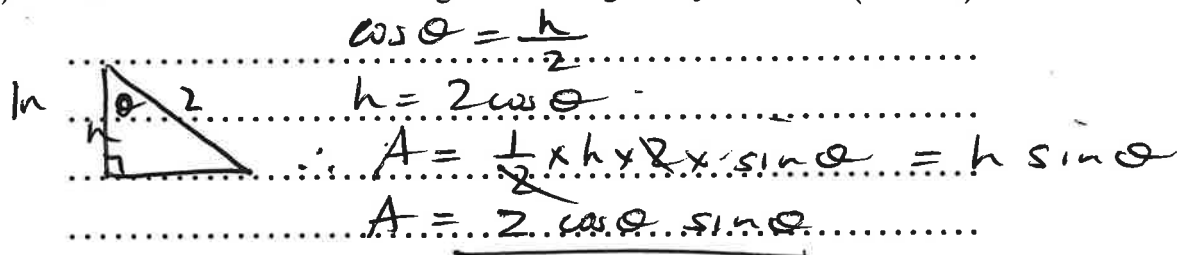 cos θ = h/2
In
θ 2
h
h = 2 cos θ
∴ A = 1/2 × h × 2 × sin θ = h sin θ
A = 2 cos θ sin θ